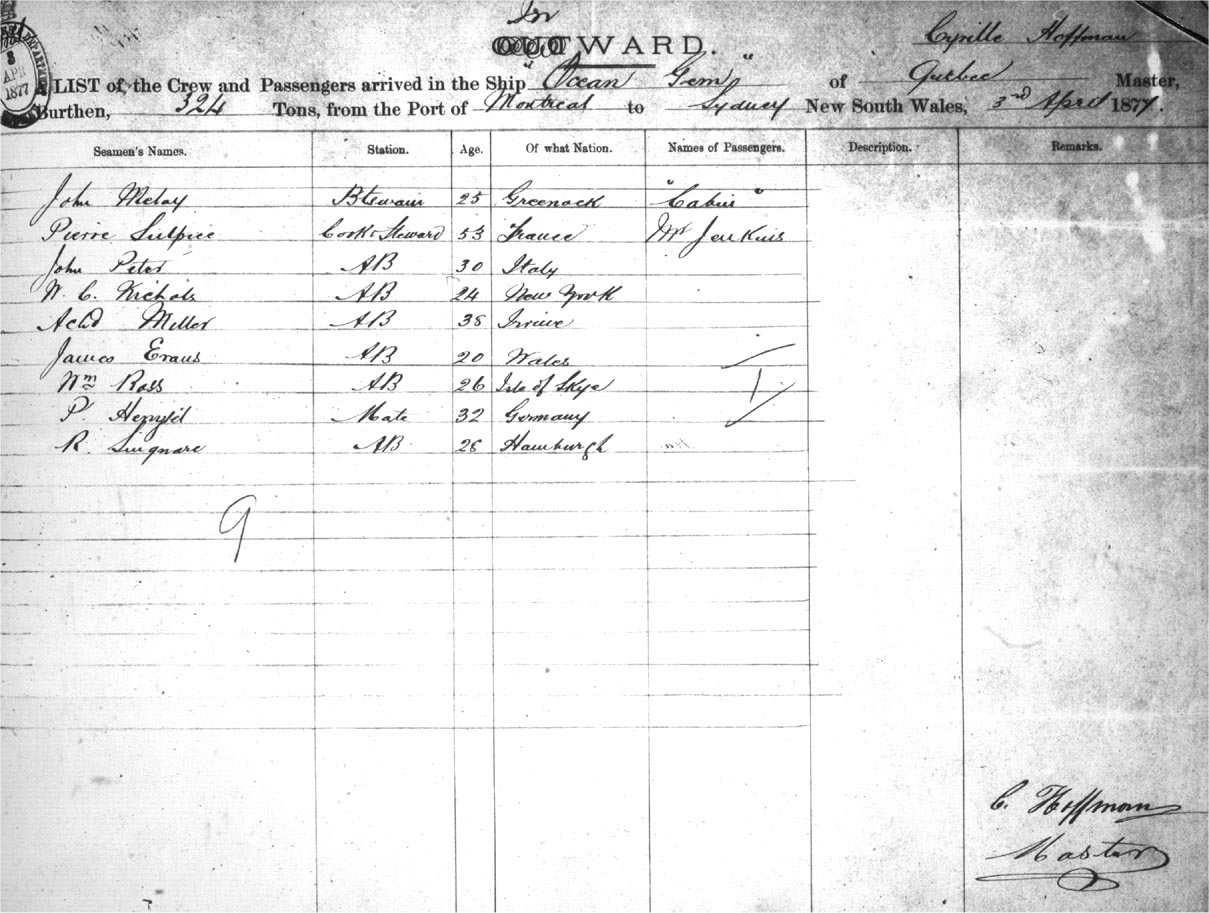 In
OUTWARD.
Cyrille Hoffman
A LIST of the Crew and Passengers arrived in the Ship "Ocean Gem" of Quebec Master,
Burthen, 324 Tons, from the Port of Montreal to Sydney New South Wales, 3rd April 1877.
APR
1877
Seamen's Names. Station. Age. Of what Nation. Names of Passengers. Description. Remarks.
John Meloy 25 Greenock "Cabin"
Pierre Sulpice Cook & Steward 53 France Mr Jenkins
John Peter AB 30 Italy
W. C. Nichols AB 24 New York
Achd Miller AB 38 Irvine
James Evans AB 20 Wales
Wm Ross AB 26 Isle of Skye
P. Mate 32 Germany
R. AB 28 Hamburgh
9
C. Hoffman
Master